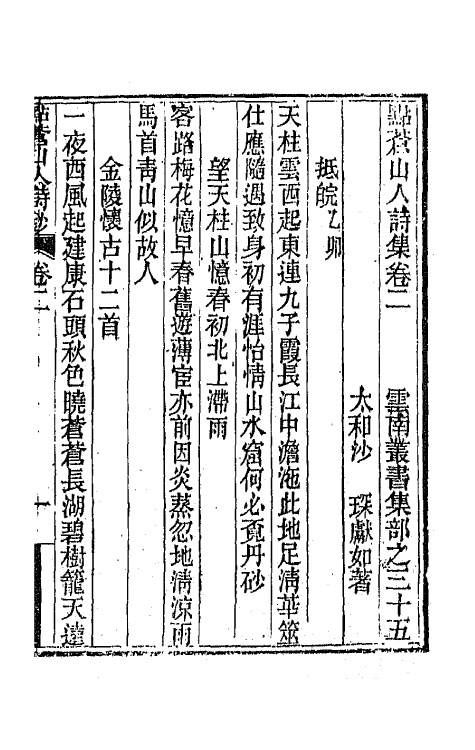 點蒼山人詩集卷二　雲南叢書集部之三十五
太和沙　琛獻如著
抵皖乙卯
天柱雲西起東連九子霞長江中澹沲此地足淸華筮
仕應隨遇致身初有涯怡情山水窟何必覓丹砂
望天柱山憶春初北上滯雨
客路梅花憶早春舊遊薄宦亦前因炎蒸忽地淸涼雨
馬首靑山似故人
金陵懷古十二首
一夜西風起建康石頭秋色曉蒼蒼長湖碧樹籠天遠
點蒼山人詩鈔　卷二　一